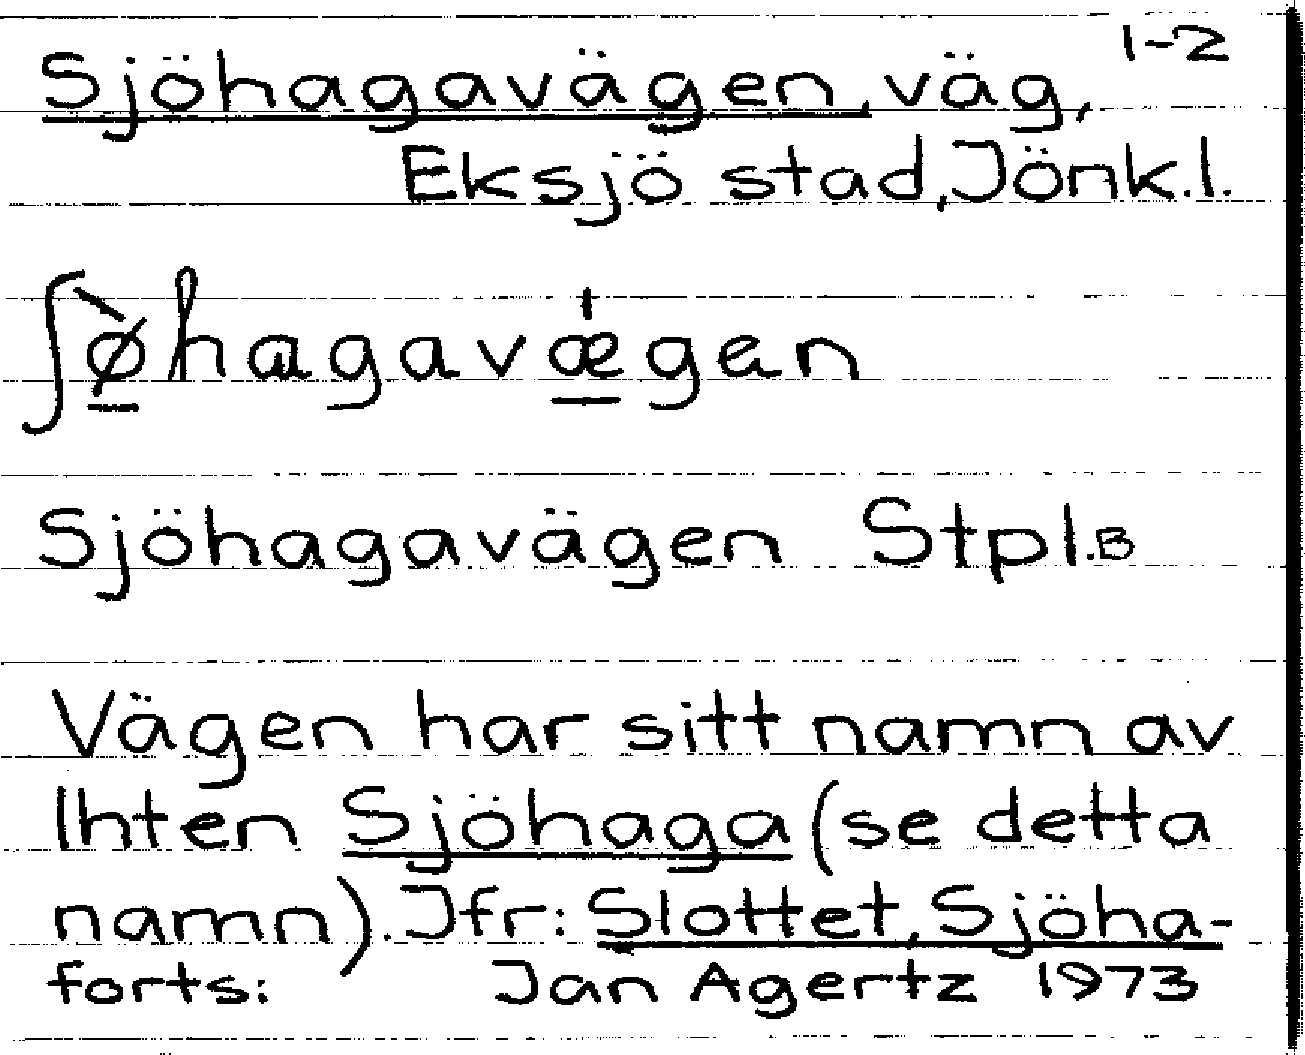 1-2
Sjöhagavägen, väg,
Eksjö stad, Jönk.l.
ʃø̀hagavǽgen
Sjöhagavägen Stpl.B
Vägen har sitt namn av
lhten Sjöhaga (se detta
namn). Jfr: Slottet, Sjöha-
forts: Jan Agertz 1973